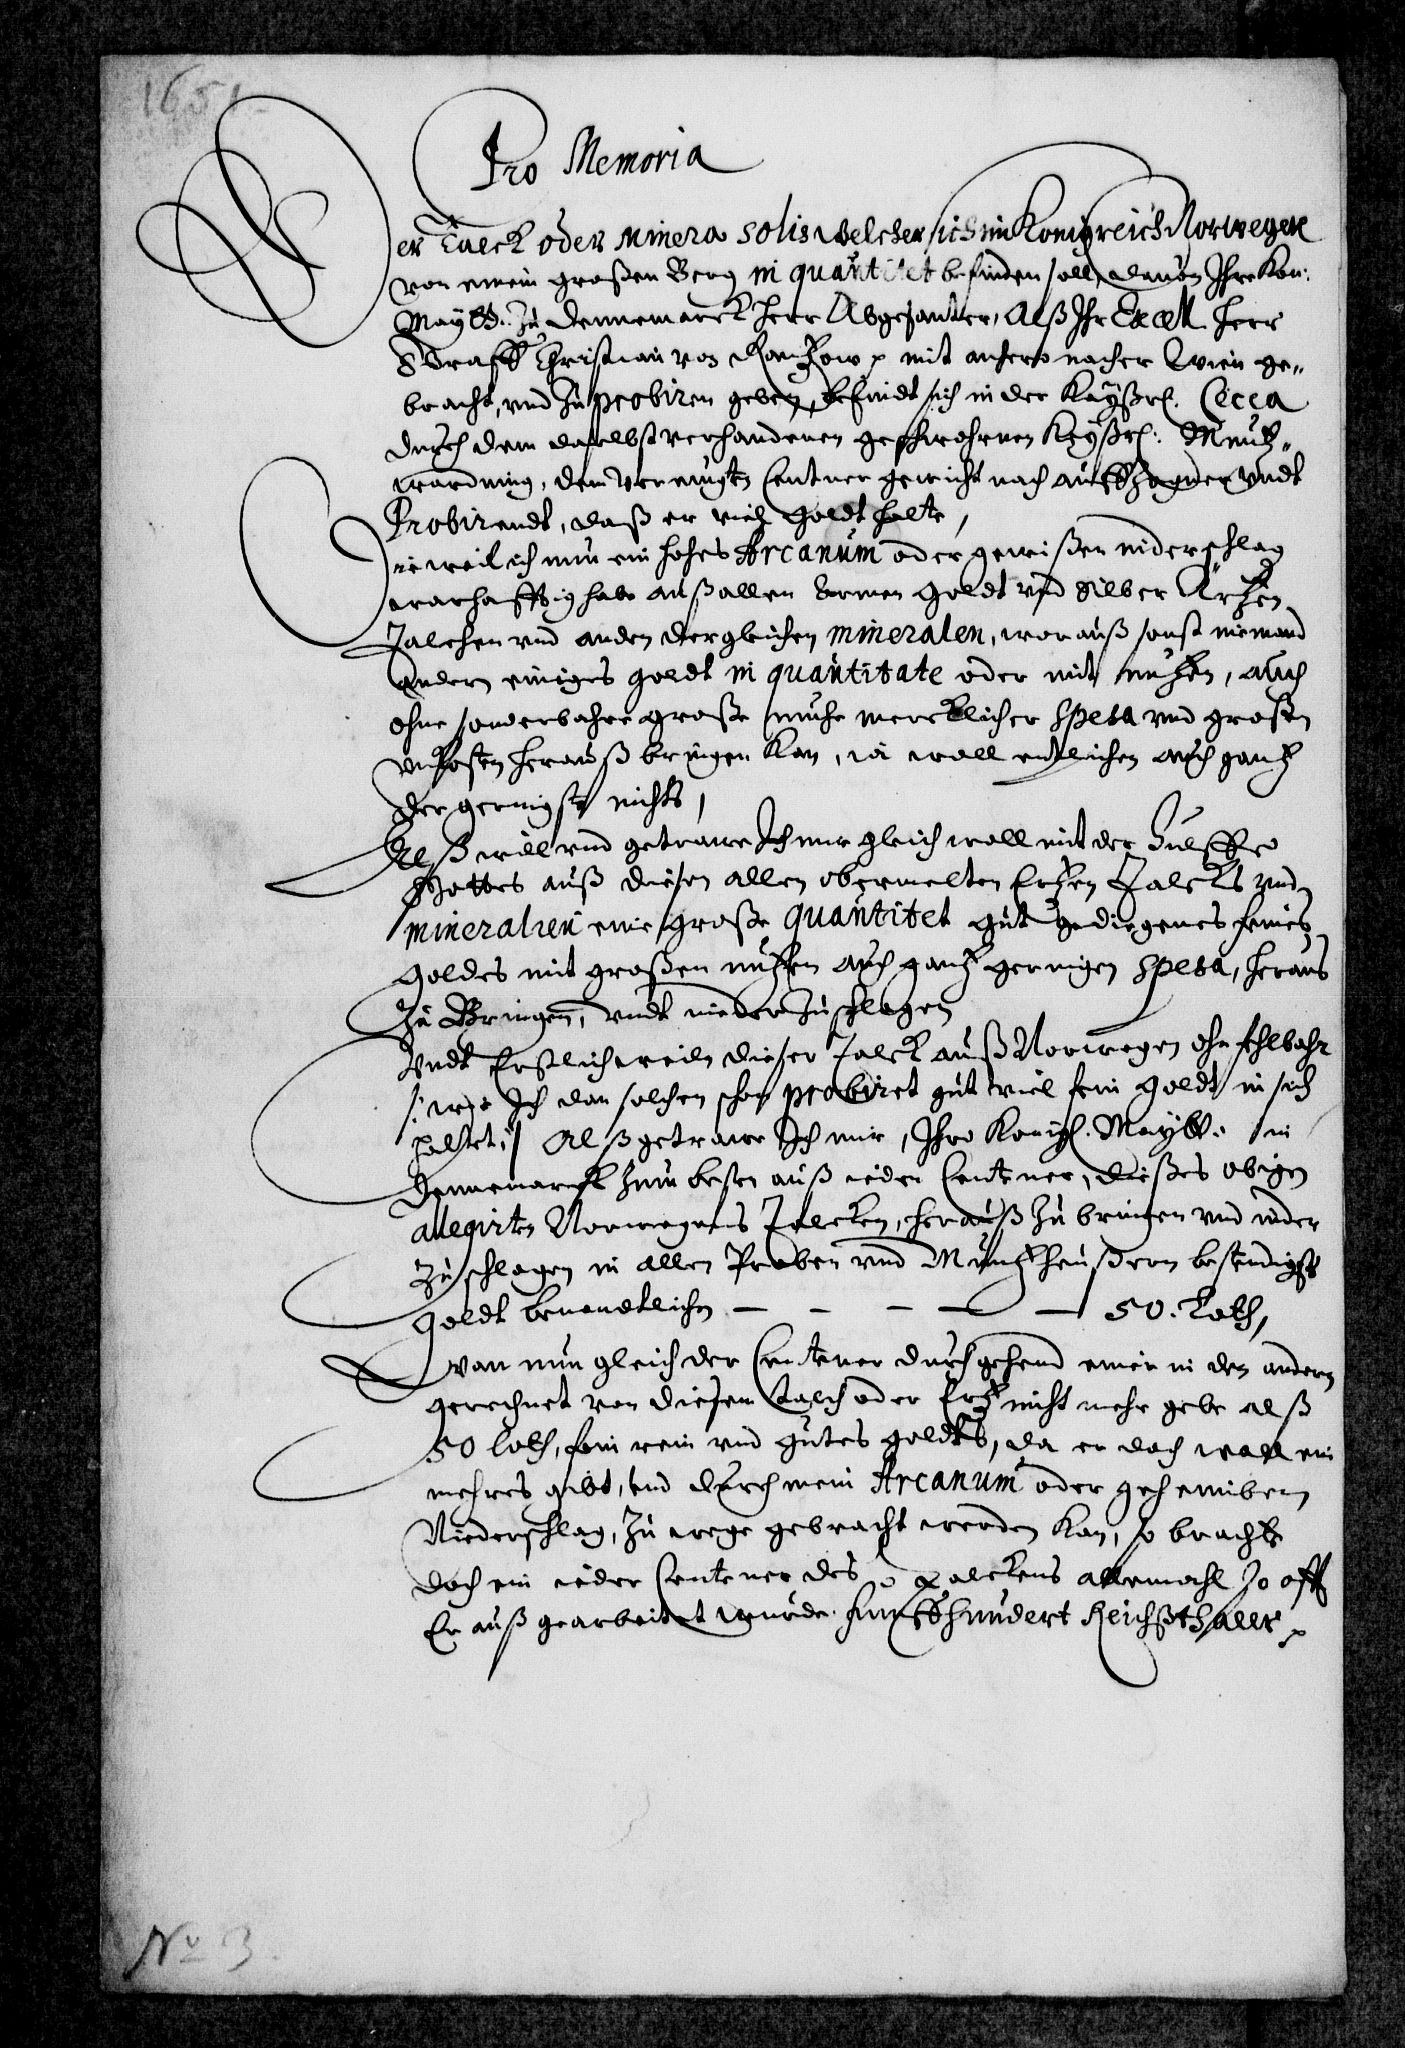 1651
Pro Memoria
Der Talck oder Minera Solis welcher sich im Konigreich Norwegen
von einem großen Berg in quantitet befinden soll, dauon Ihre Kön:
Maytt. zu Dennemarck Herr Abgesanter, Alß Ihr Excell. Herr
Graff Christian von Rantzow p mit anhero nacher Wien ge-
bracht, vnd zu probiren geben, befindt sich in der Kayßrl. Cecca
durch dem daselbst verhandenen geschwohrnen Kayßrl: Müntz-
wardning, dem verjungten Centner gewicht nach auffzogner vndt
Probirendt, daß er viel Goldt halte,
Dieweil ich nun ein hohes Arcanum oder gewißen niderschlag
warhafftig habe auß allen armen Goldt vnd Silber Ärtzen
Talchen vnd andern dergleichen mineralen, worauß sonst niemand
andern einiges goldt in quantitate oder mit nutzen, auch
ohne sonderbahre große muhe mercklicher Spesa vnd großen
vnkosten herauß bringen kan, ja woll entlichen auch gantz
der geringste nichts,
Alß will vnd getrawe Ich mir gleich woll mit der Hulffe
Gottes auß diesen allen obermelten Ertzen Talcks vnd
mineralien eine große quantitet gut gediegenes feines
Goldes mit großen nutzen auch gantz geringen Spesa, heraus
zu Bringen, vndt nieder zu schlagen
Vndt Erstlich weiln dieser Talck auß Norwegen ohnfehlbahr
/: wie Ich dan solchen schon probiret gut viel fein Goldt in sich
haltet :/ Alß getrawe Ich mir, Ihro Königl. Maytt. in
Dennemarck zum besten auß ieden Centener, dießes obigen
allegirten Norwegens Talcken, herauß zu bringen vnd nider
zu schlagen in allen Proben vnd Muntzheußern bestendigst
Goldt benandtlichen — — — — — 50. Loth,
Wan nun gleich der Centener durchgehend einer in den andern
gerechnet von diesem Talch oder Ertz nicht mehr gebe alß
50 loth, fein rein vnd gutes goldts, da er doch woll ein
mehres gibt, vnd durch mein Arcanum oder geheimben
Niderschlag, zu wege gebracht werden kan, so brachte
doch ein ieder Centener des Talckens allemahl so offt
Er auß gearbeitet wurde funffhundert Reichßthaler p
No 3.